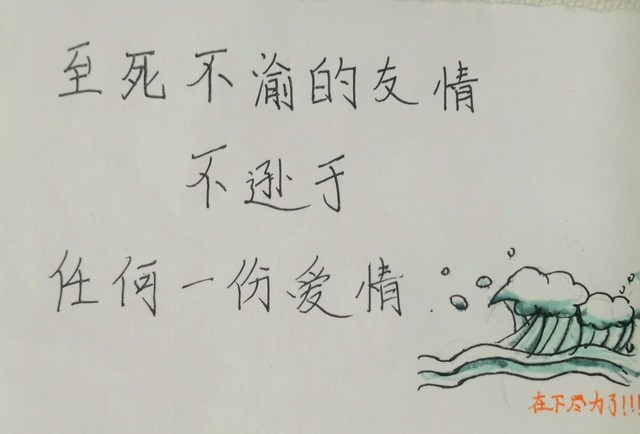 至死不渝的友情
不逊于
任何一份爱情
在下尽力了!!!